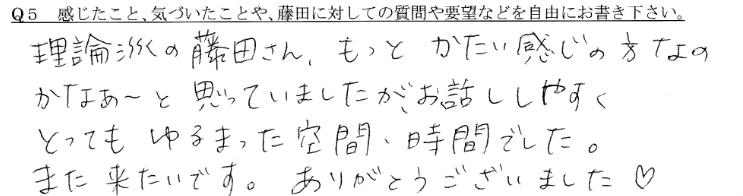 Q5　感じたこと、気づいたことや、藤田に対しての質問や要望などを自由にお書き下さい。
理論派の藤田さん、もっと かたい感じの方なの
かなぁ〜と思っていましたが、お話ししやすく
とっても ゆるまった空間、時間でした。
また来たいです。 ありがとうございました♡